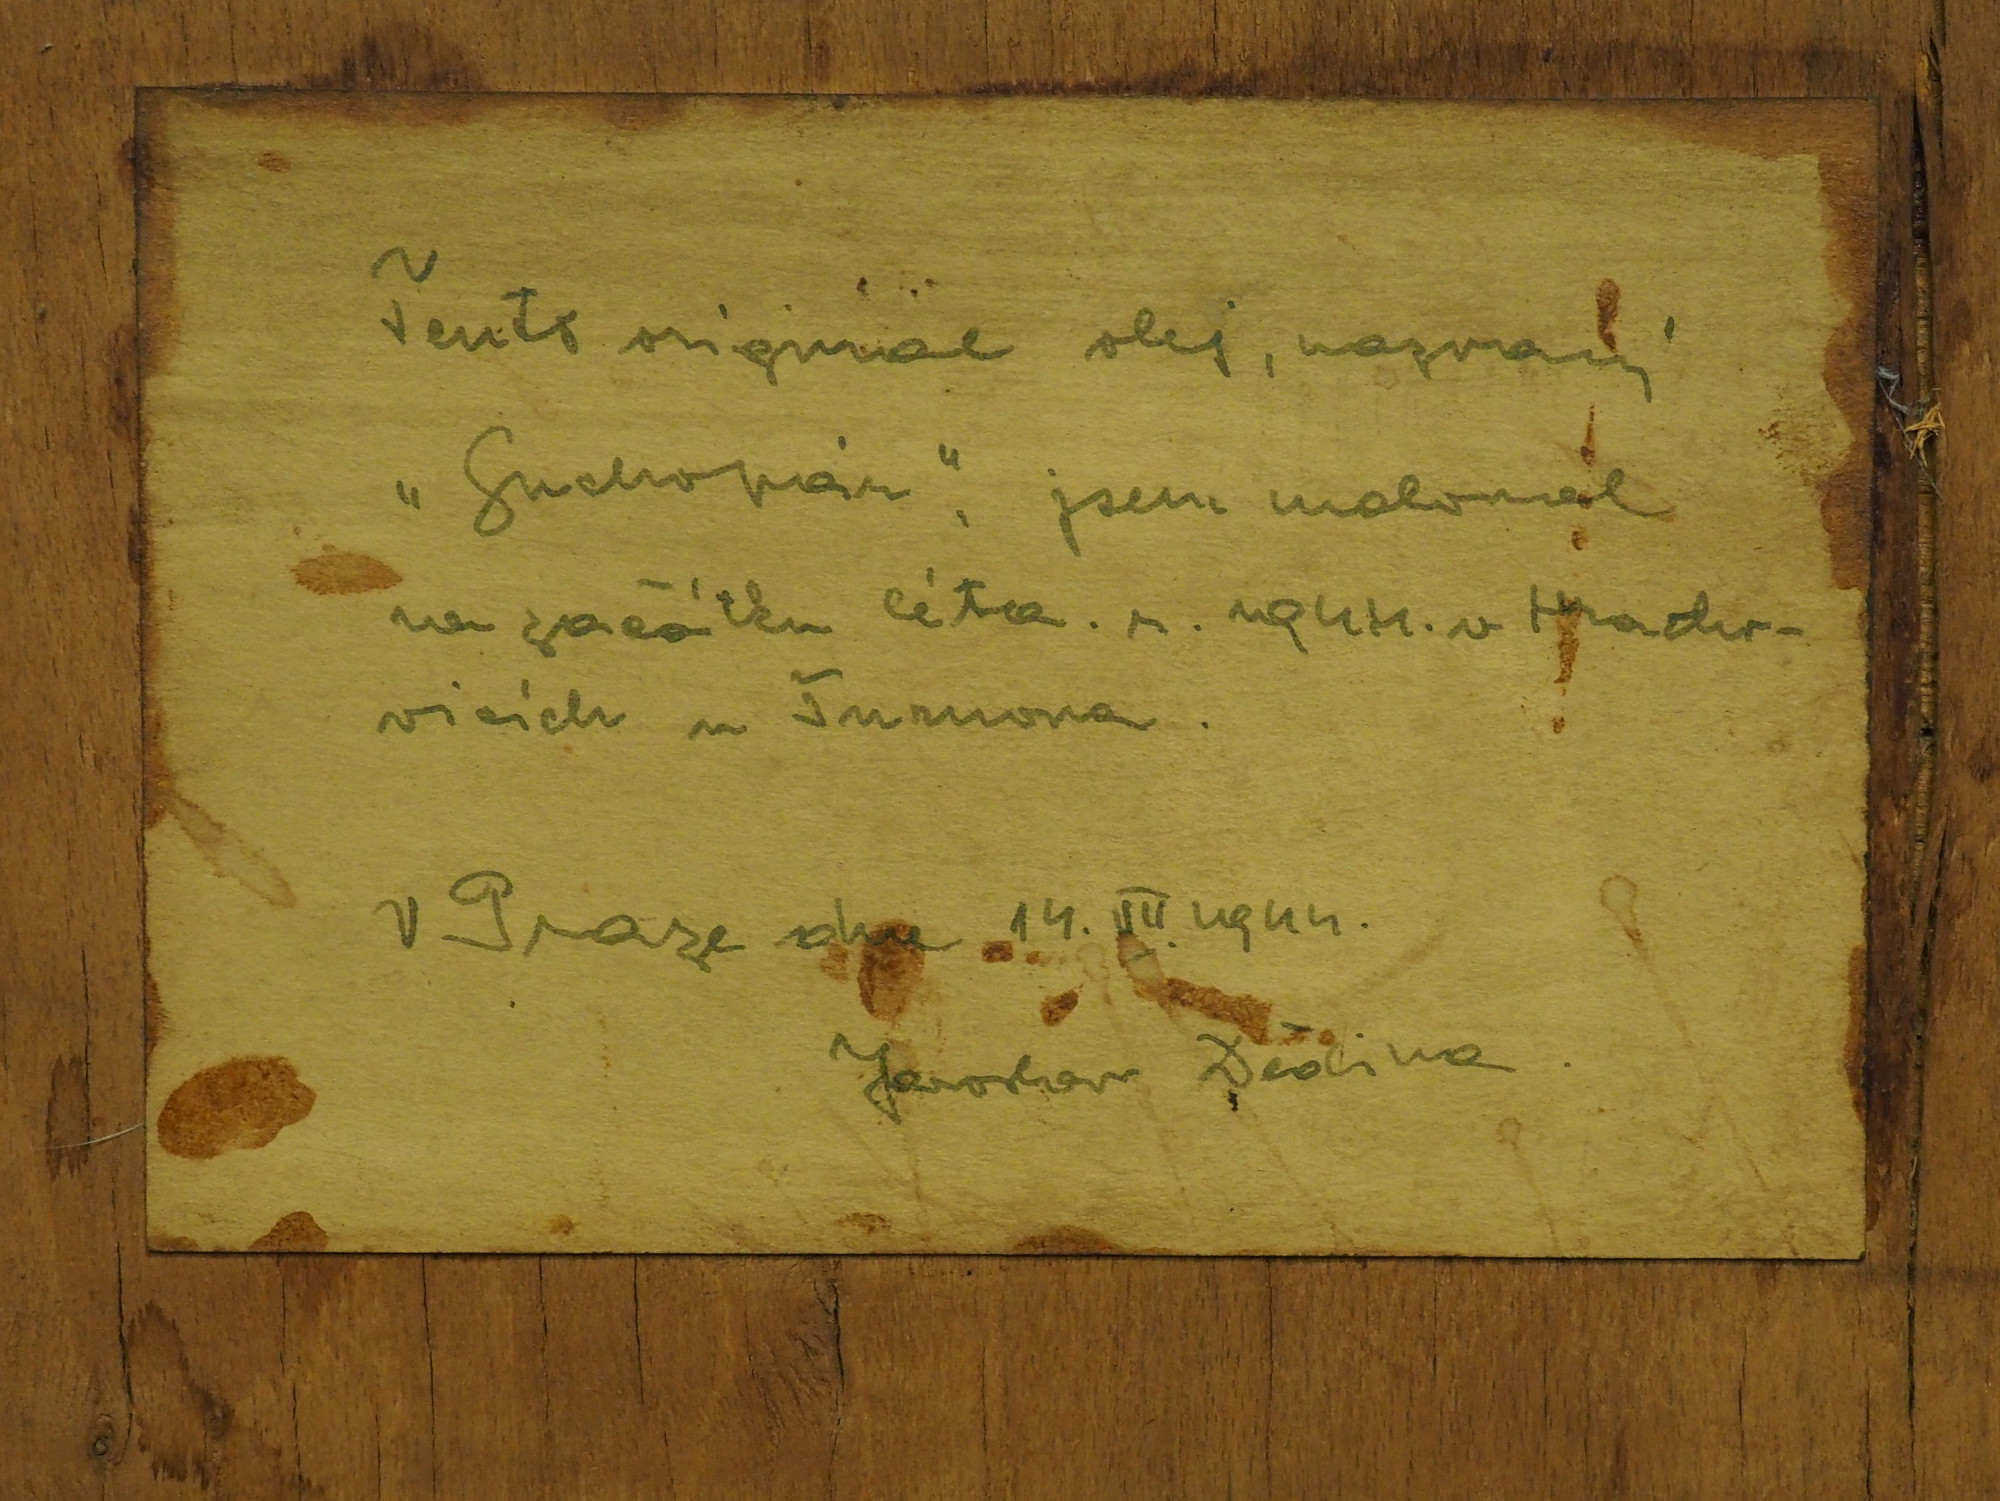 Tento original olej, nazvaný
„Suchopár", jsem maloval
na začátku léta. r. 1944. v Hracho-
vicích u Turnova.
V Praze dne 14. VII. 1944.
Jaroslav Dědina.